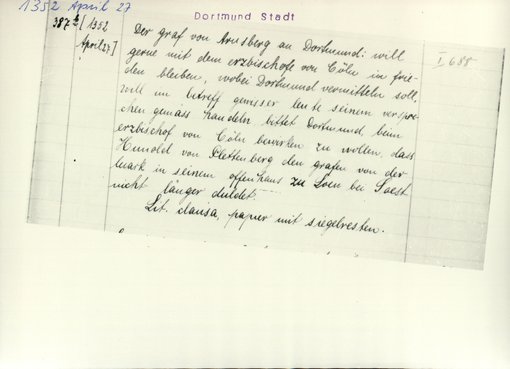 1352 April 27
Dortmund Stadt
387b [1352
April 27]
I 688
Der graf von Arnsberg an Dortmund: will
gerne mit dem erzbischofe von Cöln in frie-
den bleiben, wobei Dortmund vermitteln soll,
will in betreff gewisser leute seinem verspre-
chen gemäss handeln bittet Dortmund, beim
erzbischof von Cöln bewirken zu wollen, dass
Hunold von Plettenberg den grafen von der
Mark in seinem offenhaus zu Loen bei Soest
nicht länger duldet.
Lit. clausa, papier mit siegelresten.